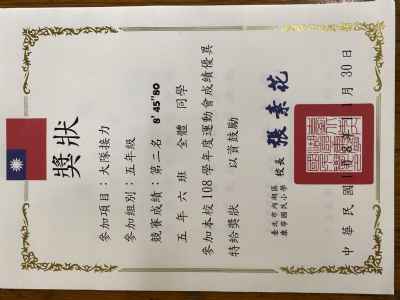 獎狀
參加項目：大隊接力
參加組別：五年級
競賽成績：第二名 8' 45"80
五年六班 全體 同學
參加本校108學年度運動會成績優異
特給獎狀 以資鼓勵
臺北市內湖區
康寧國民小學
校長 張素花
中華民國 1 月 30 日